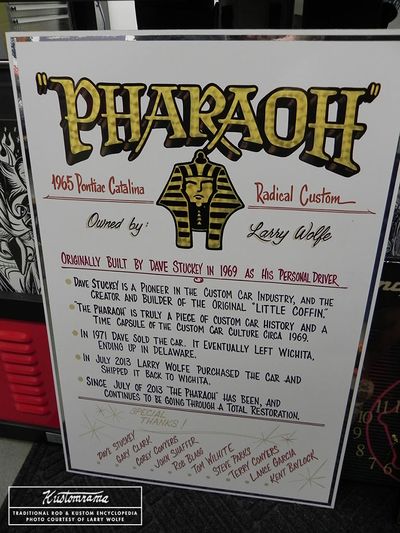 "PHARAOH"
1965 Pontiac Catalina
Radical Custom
Owned by:
Larry Wolfe
ORIGINALLY BUILT BY DAVE STUCKEY IN 1969 AS HIS PERSONAL DRIVER
DAVE STUCKEY IS A PIONEER IN THE CUSTOM CAR INDUSTRY, AND THE
CREATOR AND BUILDER OF THE ORIGINAL "LITTLE COFFIN."
"THE PHARAOH" IS TRULY A PIECE OF CUSTOM CAR HISTORY AND A
TIME CAPSULE OF THE CUSTOM CAR CULTURE CIRCA 1969.
IN 1971 DAVE SOLD THE CAR. IT EVENTUALLY LEFT WICHITA,
ENDING UP IN DELAWARE.
IN JULY 2013 LARRY WOLFE PURCHASED THE CAR AND
SHIPPED IT BACK TO WICHITA.
SINCE JULY OF 2013 "THE PHARAOH" HAS BEEN, AND
CONTINUES TO BE GOING THROUGH A TOTAL RESTORATION.
SPECIAL
THANKS!
DAVE STUCKEY
GARY CLARK
COREY CONYERS
JOHN SHAFFER
ROB BLAGG
TOM WILHITE
STEVE PARKS
TERRY CONYERS
LANCE GARCIA
KENT BAYLOCK
Kustomrama
TRADITIONAL ROD & KUSTOM ENCYCLOPEDIA
PHOTO COURTESY OF LARRY WOLFE